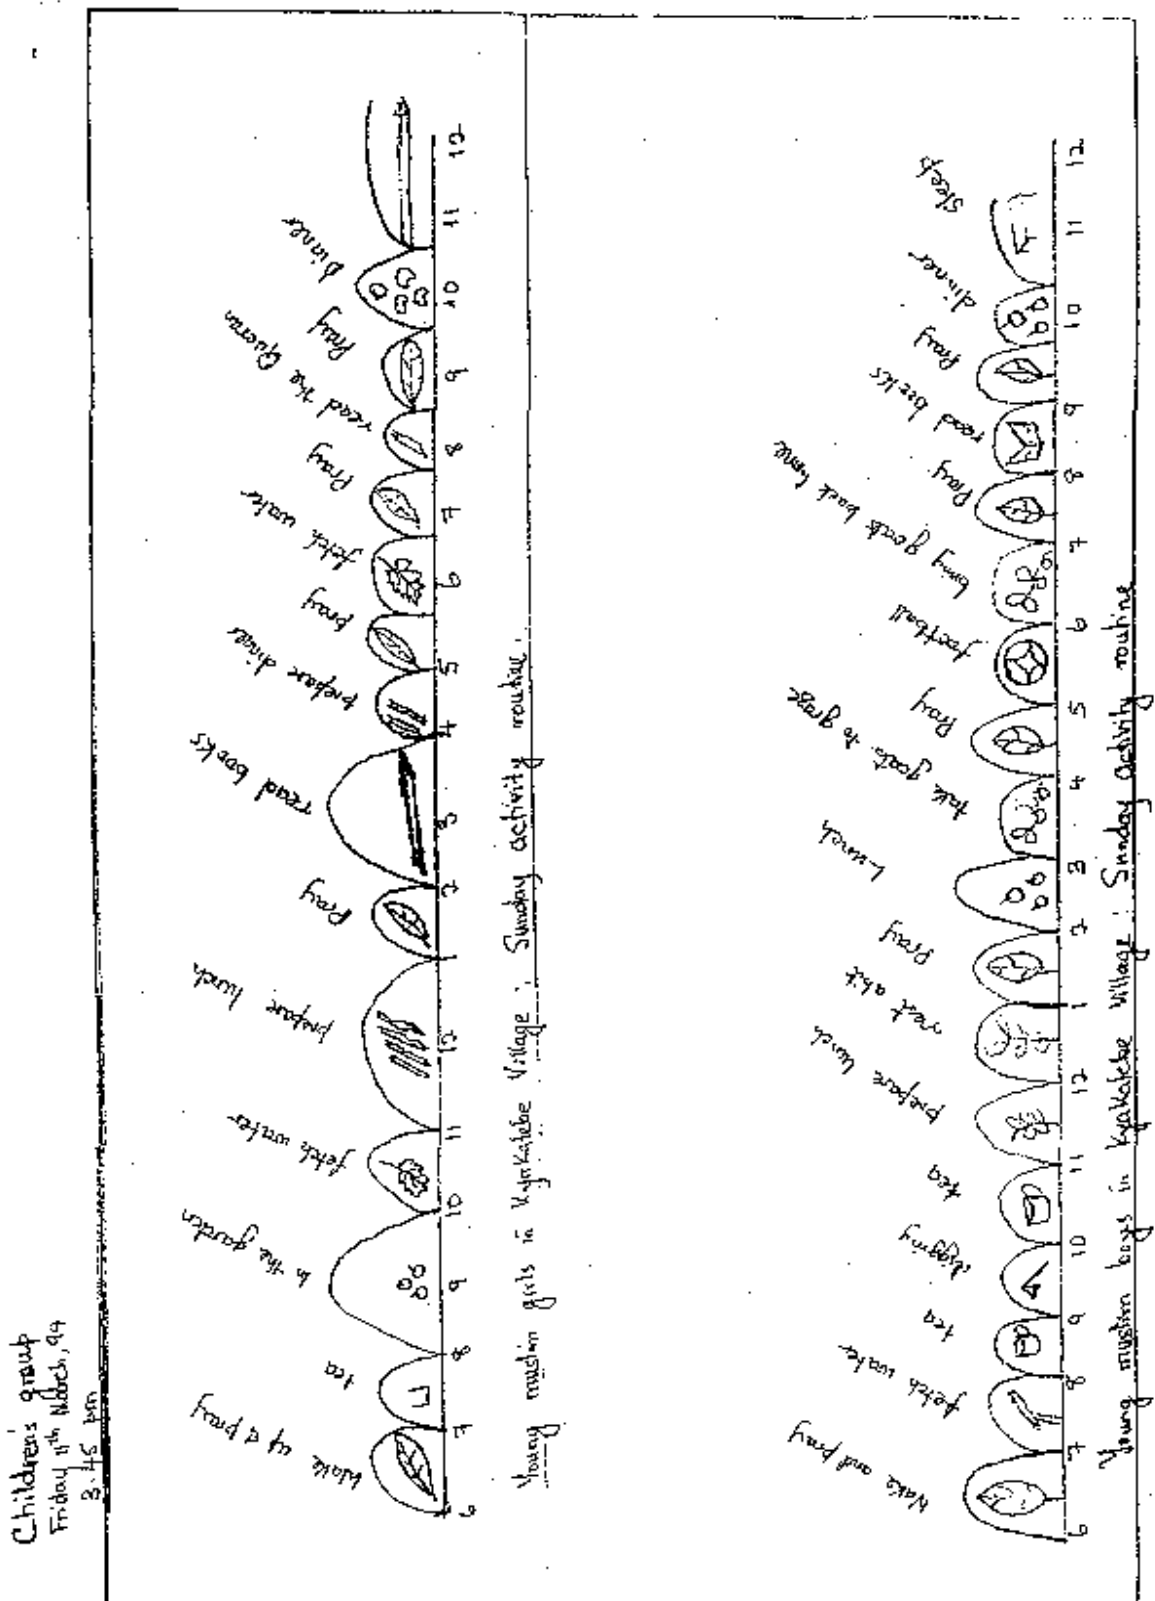 Children's group
Friday 11th March, 94
3.45 pm
Wake up & pray
tea
In the garden
fetch water
prepare lunch
Pray
read books
prepare diner
pray
fetch water
Pray
read the Queran
Pray
Dinner
6 7 8 9 10 11 12 1 2 3 4 5 6 7 8 9 10 11 12
Young muslim girls in Kyakatebe Village : Sunday activity routine
Wake and pray
fetch water
tea
digging
tea
prepare lunch
rest abit
Pray
Lunch
take goats to graze
Pray
football
bring goats back home
Pray
read books
Pray
dinner
Sleep
6 7 8 9 10 11 12 1 2 3 4 5 6 7 8 9 10 11 12
Young muslim boys in Kyakatebe Village : Sunday activity routine